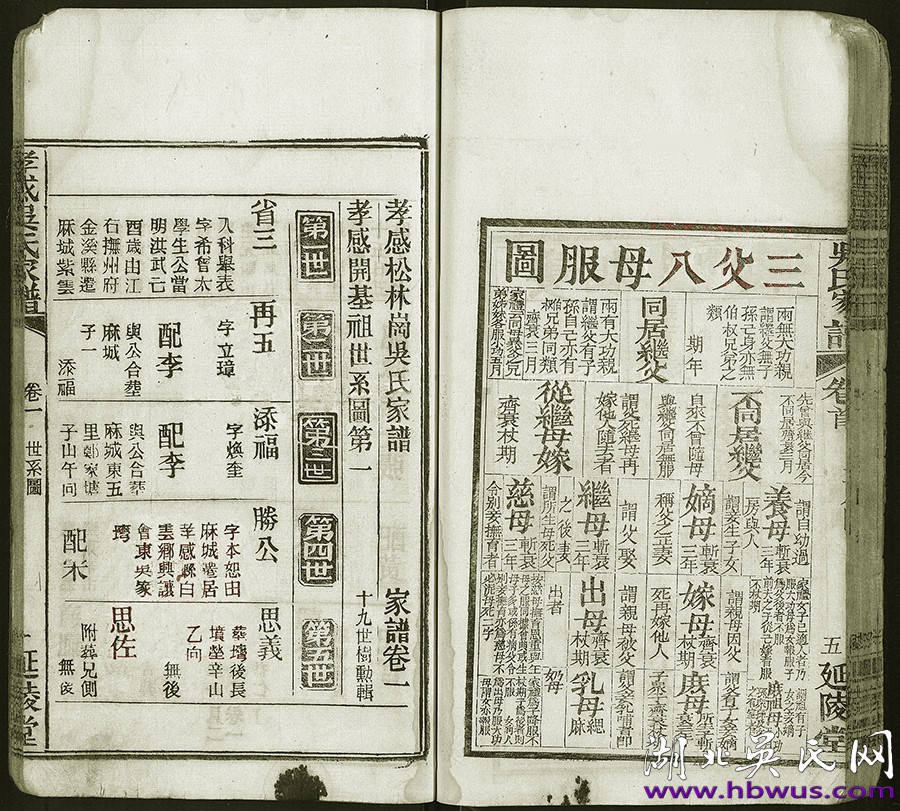 三父八母服圖
兩無大功親
謂繼父無子
孫已身亦無
伯叔兄弟之
類
期年
同居繼父
兩有大功親
謂繼父有子
孫自己亦有
伯兄弟同類
齊衰三月
先曾與繼父同居今
不同居齊衰三月
不同居繼父
自來不曾隨母
與繼父同居無服
謂父死繼母再
嫁他人隨去者
從繼母嫁
齊衰杖期
謂自幼過
房與人
養母
斬衰
三年
謂妾生子女
稱父之正妻
嫡母
斬衰
三年
謂父娶
之後妻
繼母
斬衰
三年
謂所生母死父
令別妾撫育者
慈母
斬衰
三年
謂親母因父
死再嫁他人
嫁母
齊衰
杖期
謂親母被父
出者
出母
齊衰
杖期
庶母
謂父妾乳哺者即
奶母
乳母
緦
麻
吳氏家譜
卷首
五
延陵堂
孝感松林崗吳氏家譜
家譜卷一
孝感開基祖世系圖第一
十九世樹勳輯
第一世
第二世
第三世
第四世
第五世
省三
入科舉表
字希曾太
學生公當
明洪武乙
酉歲由江
右撫州府
金溪縣遷
麻城紫雲
再五
字立璋
配李
與公合塟
麻城
子一
添福
添福
字煥奎
配李
與公合塟
麻城東五
里鄭家塘
子山午向
勝公
字本恕由
麻城遷居
孝感縣白
雲鄉興讓
會東吳家
塆
配宋
思義
葬塆後長
墳塋辛山
乙向
無後
思佐
附葬兄側
無後
孝感吳氏家譜
卷一
世系圖
一
延陵堂
湖北吳氏网
www.hbwus.com